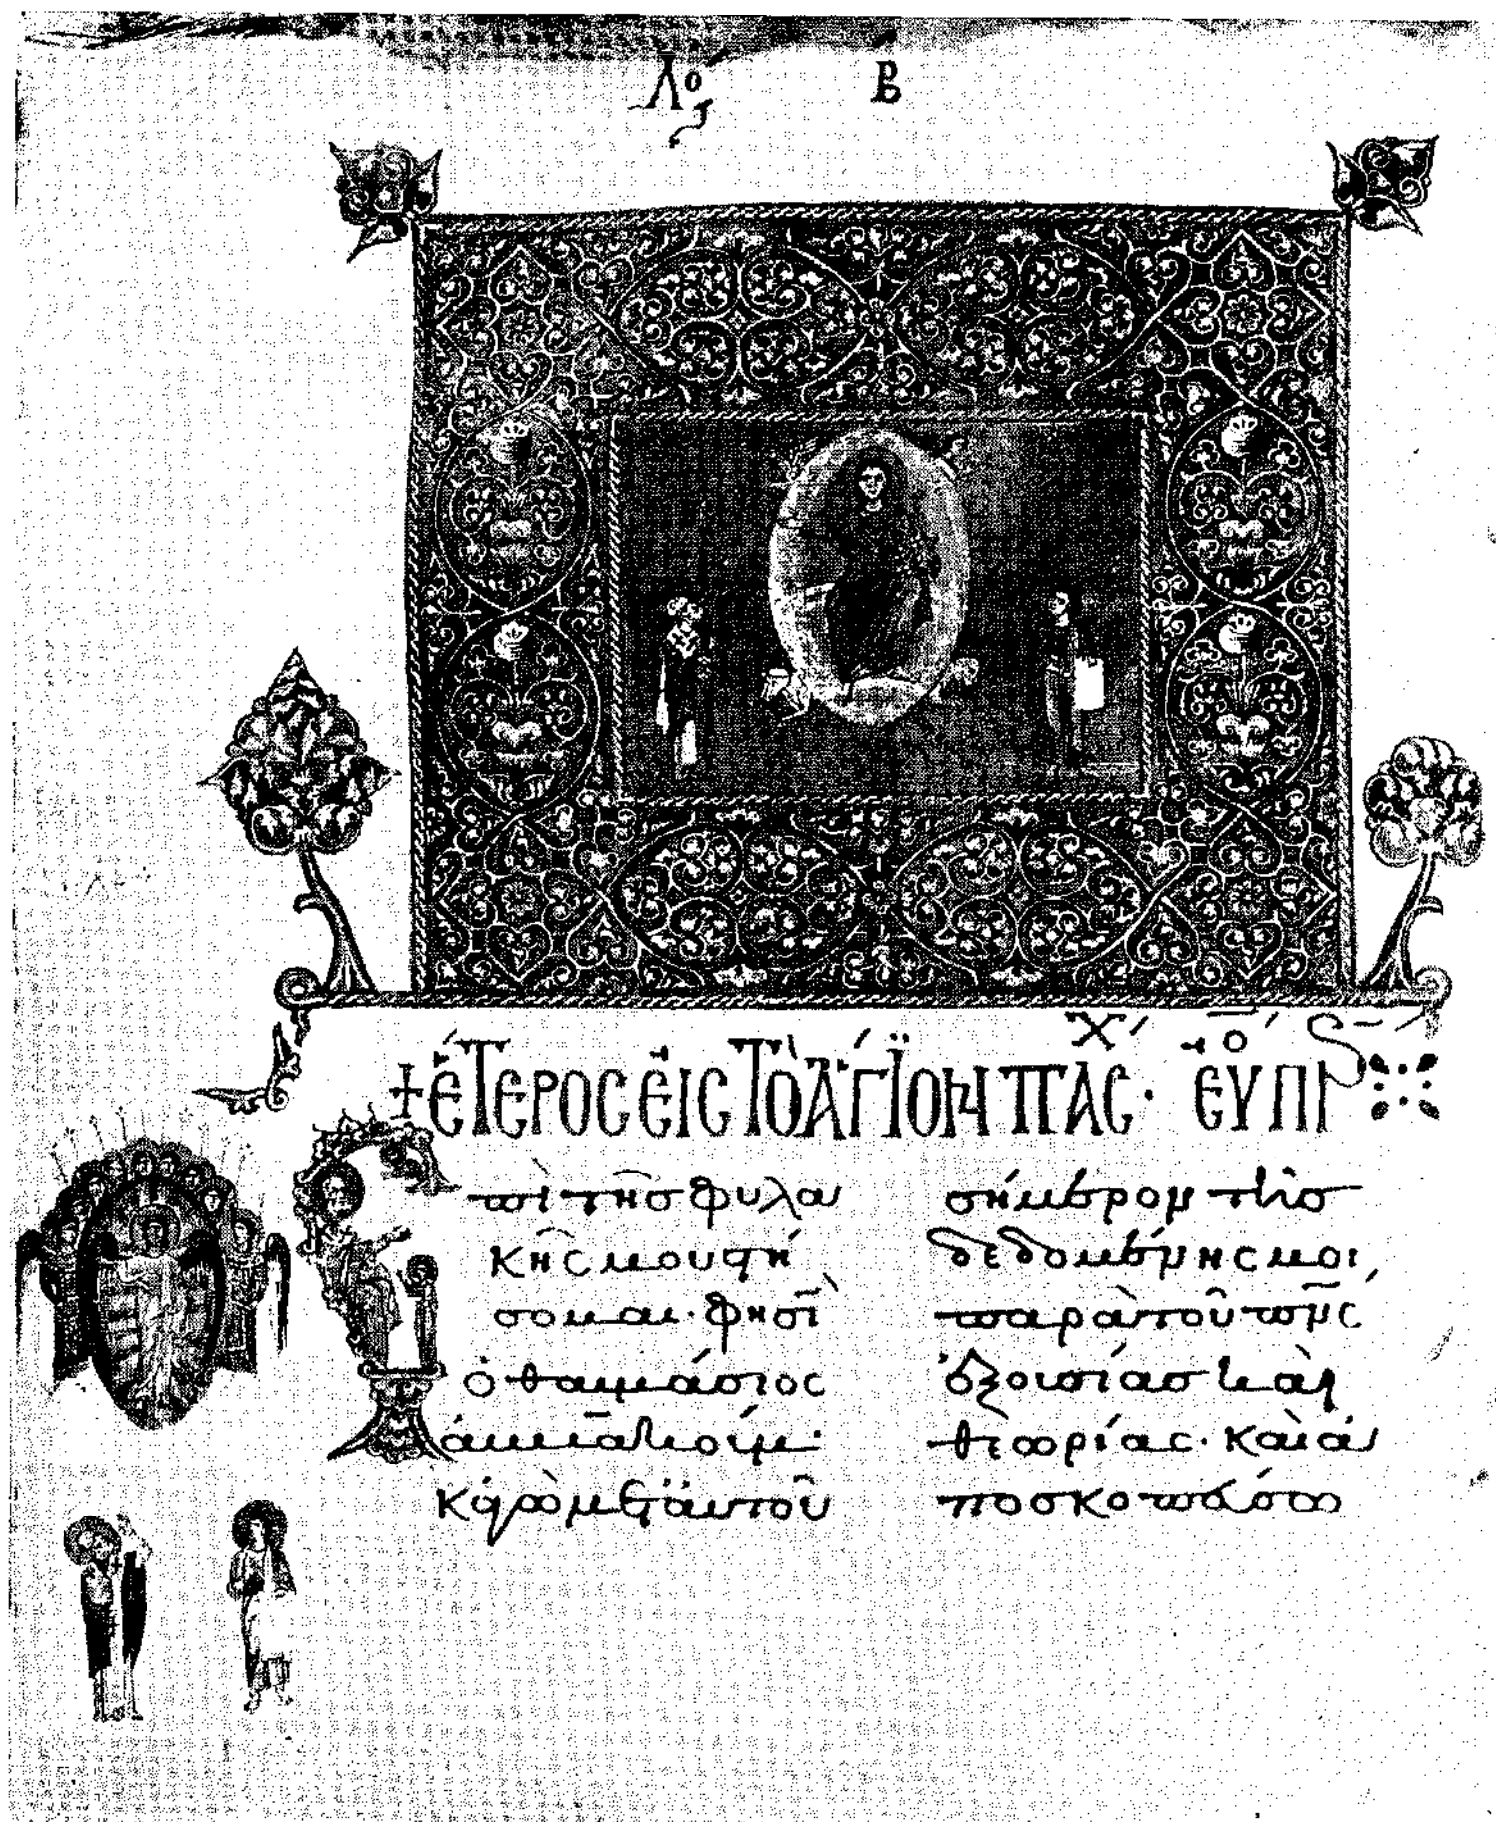 Λό Β
+ ἕτερος εἰς τὸ ἅγιον πάσχ· εὐλ
πὶ τῆς φυλα
κῆς μου στή
σομαι· φησὶ
ὁ θαυμάσιος
ἀμβακούμ·
κἀγὼ μετ αὐτοῦ
σήμερον τῆς
δεδομένης μοι
παρὰ τοῦ πνς
ἐξουσίας καὶ
θεωρίας· καὶ ἀ
ποσκοπεύσω